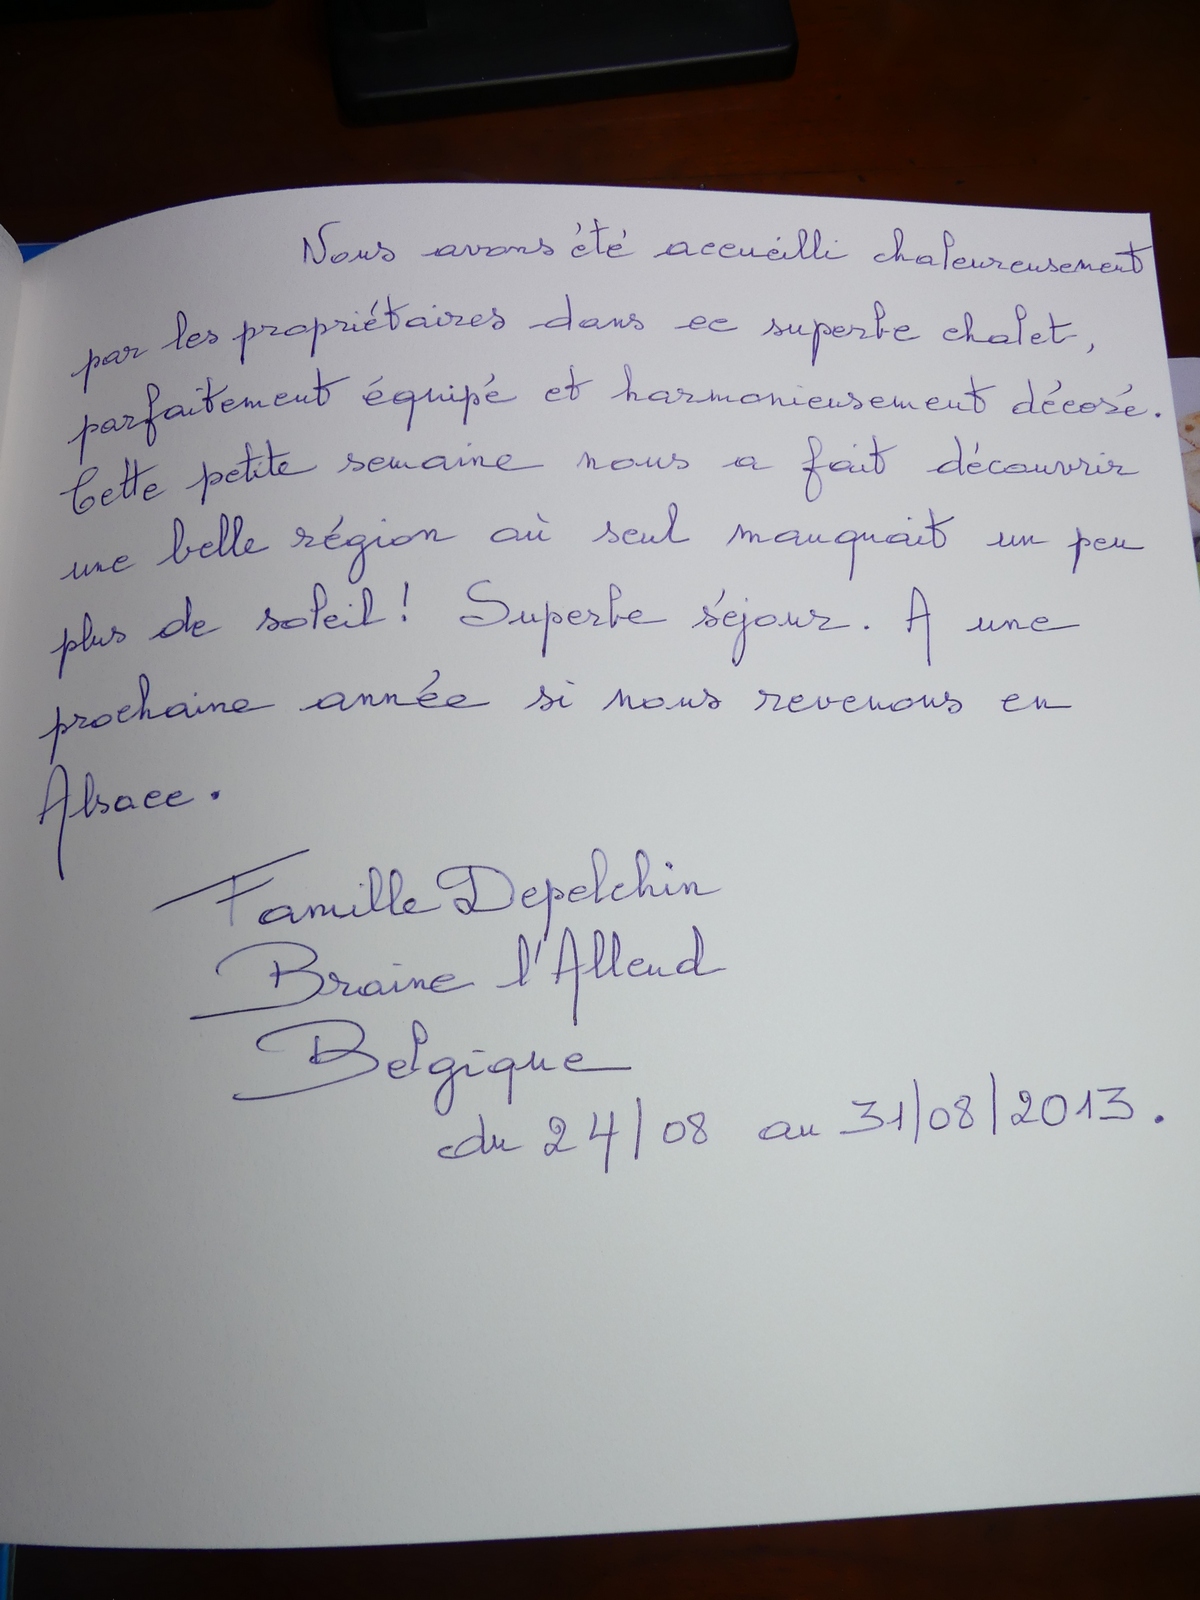 Nous avons été accueilli chaleureusement
par les propriétaires dans ce superbe chalet,
parfaitement équipé et harmonieusement décoré.
Cette petite semaine nous a fait découvrir
une belle région où seul manquait un peu
plus de soleil! Superbe séjour. A une
prochaine année si nous revenons en
Alsace.
Famille Depelchin
Braine l'Alleud
Belgique
du 24/08 au 31/08/2013.